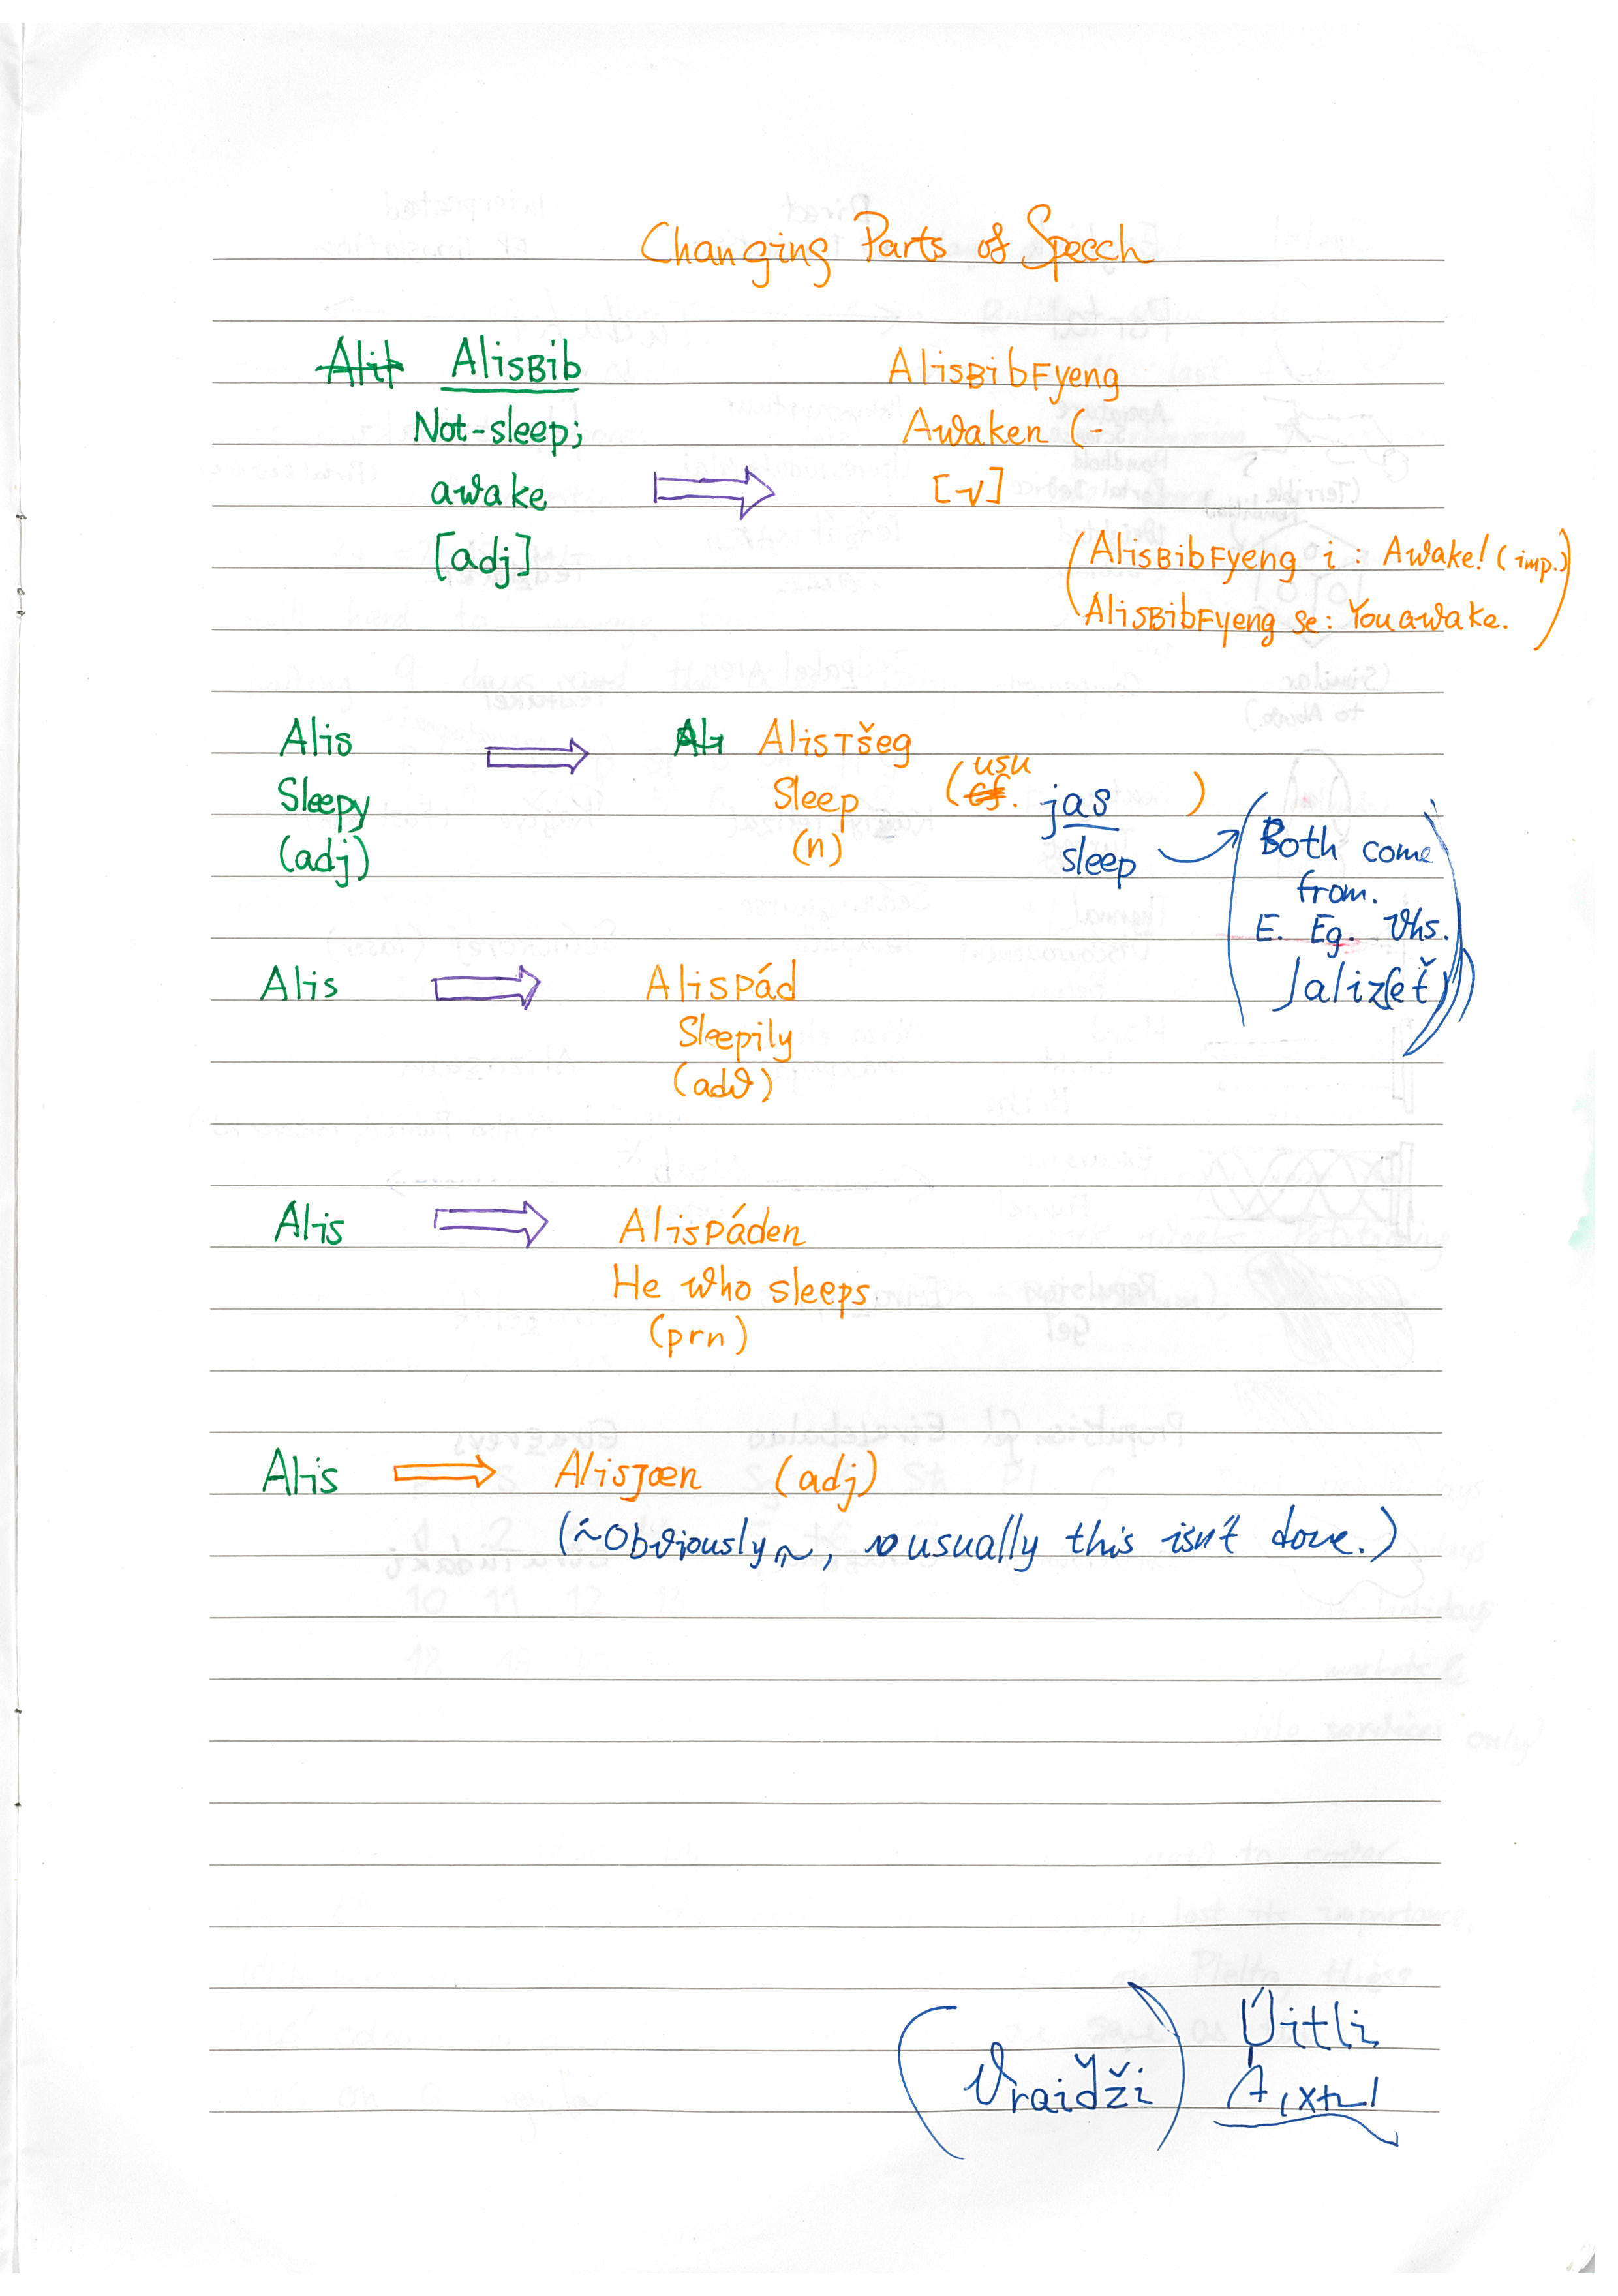 Changing Parts of Speech
Alit AlisBib
Not-sleep;
awake
[adj]
AlisBibFyeng
Awaken (-
[v]
(AlisBibFyeng i : Awake! (imp.)
AlisBibFyeng se: You awake.)
Alis
Sleepy
(adj)
AlisTšeg
Sleep
(n)
(usu. jas)
sleep
(Both come
from.
E. Eg. Vhs.
Alis
AlisPád
Sleepily
(adv)
Alis
AlisPáden
He who sleeps.
(prn)
Alis
AlisJæn (adj)
(~Obviously~, usually this isn't done.)
(Vraidži)
Úitli